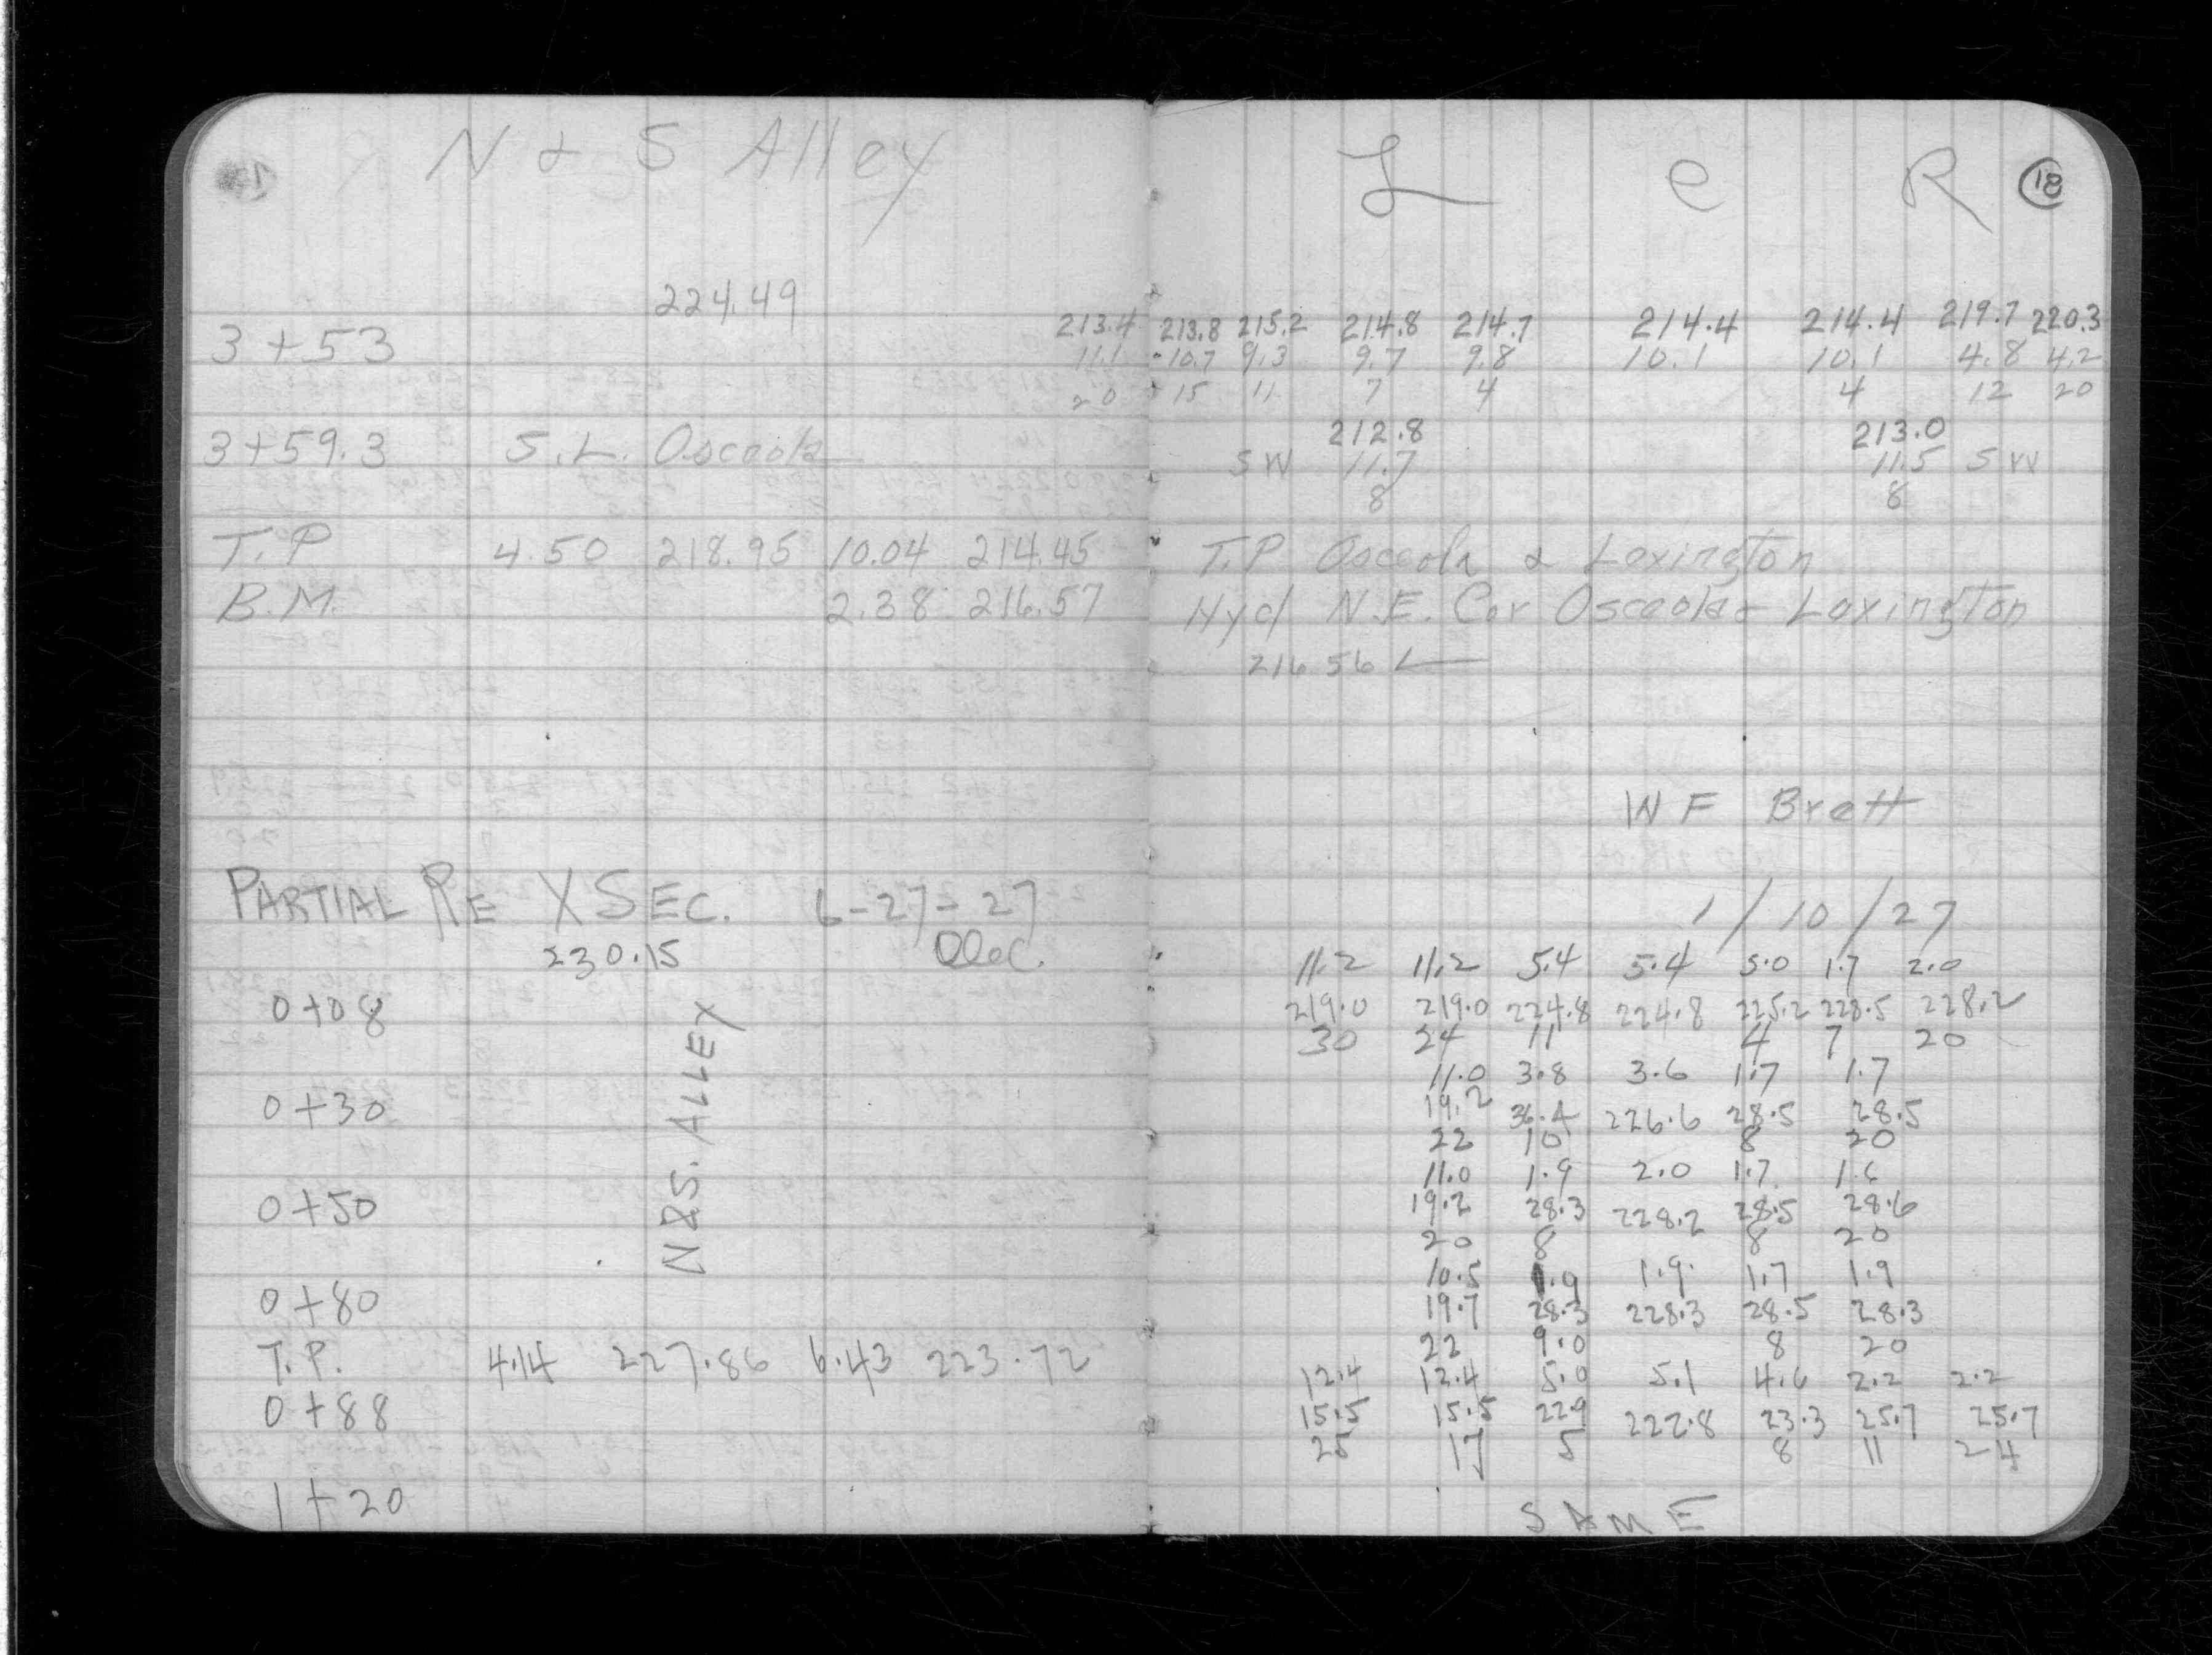 N & S Alley
224.49
3+53
213.4
11.1
20
3+59.3 S.L. Osceola
T.P 4.50 218.95 10.04 214.45
B.M. 2.38 216.57
PARTIAL RE XSEC. 6-27-27
230.15
0+08
0+30
0+50
0+80
T.P. 4.14 227.86 6.43 223.72
0+88
1+20
N & S. ALLEY
L C R 18
213.8 215.2 214.8 214.7 214.4 214.4 219.7 220.3
10.7 9.3 9.7 9.8 10.1 10.1 4.8 4.2
15 11 7 4 4 12 20
212.8 213.0
SW 11.7 11.5 SW
8 8
T.P Osceola & Lexington
Hyd N.E. Cor Osceola & Lexington
216.56
WF Brett
1/10/27
11.2 11.2 5.4 5.4 5.0 1.7 2.0
219.0 219.0 224.8 224.8 225.2 228.5 228.2
30 24 11 4 7 20
11.0 3.8 3.6 1.7 1.7
19.2 36.4 226.6 28.5 28.5
22 10 8 20
11.0 1.9 2.0 1.7 1.6
19.2 28.3 228.2 28.5 28.6
20 8 8 20
10.5 1.9 1.9 1.7 1.9
19.7 28.3 228.3 28.5 28.3
22 9.0 8 20
12.4 12.4 5.0 5.1 4.6 2.2 2.2
15.5 15.5 22.9 222.8 23.3 25.7 25.7
25 17 5 8 11 24
SAME